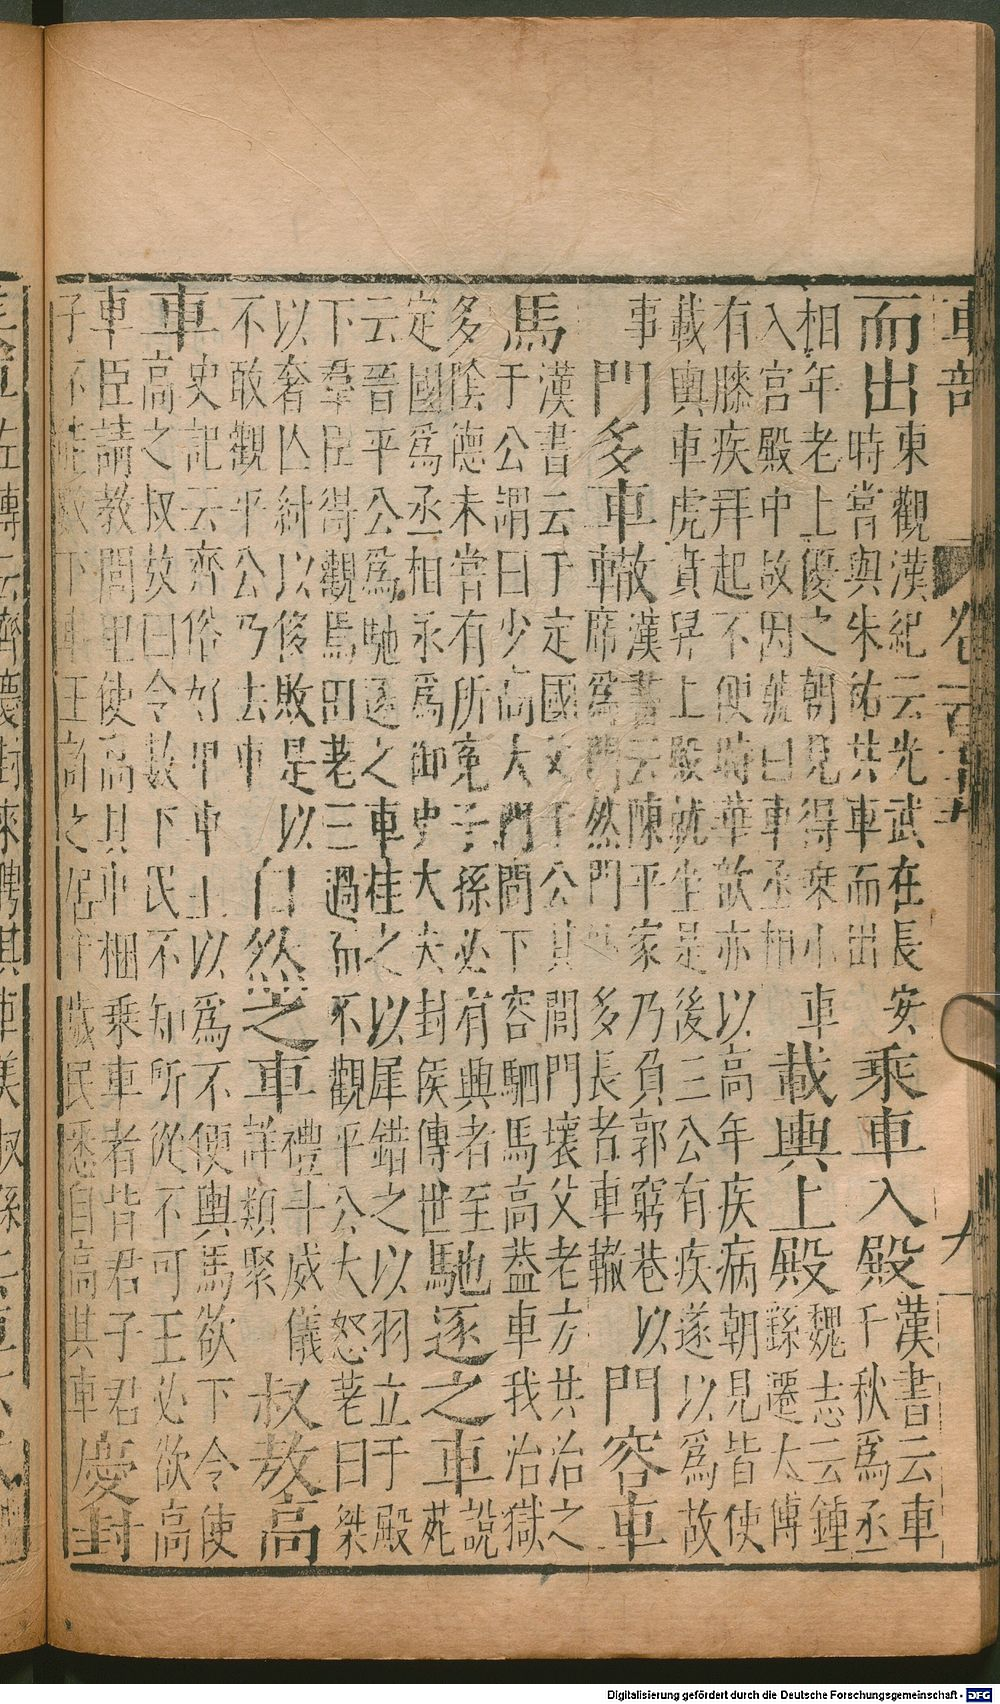 車部 卷一百 九
而出 東觀漢紀云光武在長安
時嘗與朱祐共車而出
乘車入殿 漢書云車
千秋爲丞
相年老上優之朝見得乘小車
入宮殿中故因號曰車丞相
載輿上殿 魏志云鍾
繇遷太傅
有膝疾拜起不便時華歆亦以高年疾病朝見皆使
載輿車虎賁舁上殿就坐是後三公有疾遂以爲故
事
門多車轍 漢書云陳平家乃負郭窮巷以
席爲門然門外多長者車轍
門容車
馬 漢書云于定國父于公其閭門壞父老方共治之
于公謂曰少高大門閭下容駟馬高葢車我治獄
多陰德未嘗有所冤子孫必有興者至
定國爲丞相永爲御史大夫封侯傳世
馳逐之車 說
苑
云晉平公爲馳逐之車桂之以犀錯之以羽立于殿
下羣臣得觀焉田老三過而不觀平公大怒老曰桀
以奢亾紂以侈敗是以
不敢觀平公乃去車
自然之車 禮斗威儀
詳類聚
叔敖高
車 史記云齊俗好卑車王以爲不便輿馬欲下令使
高之叔敖曰令數下民不知所從不可王必欲高
車臣請教閭里使高其車梱乘車者皆君子君
子不能數下車王高之居半歲民悉自高其車
慶封
左傳云齊慶封來聘其車美叔孫
Digitalisierung gefördert durch die Deutsche Forschungsgemeinschaft - DFG